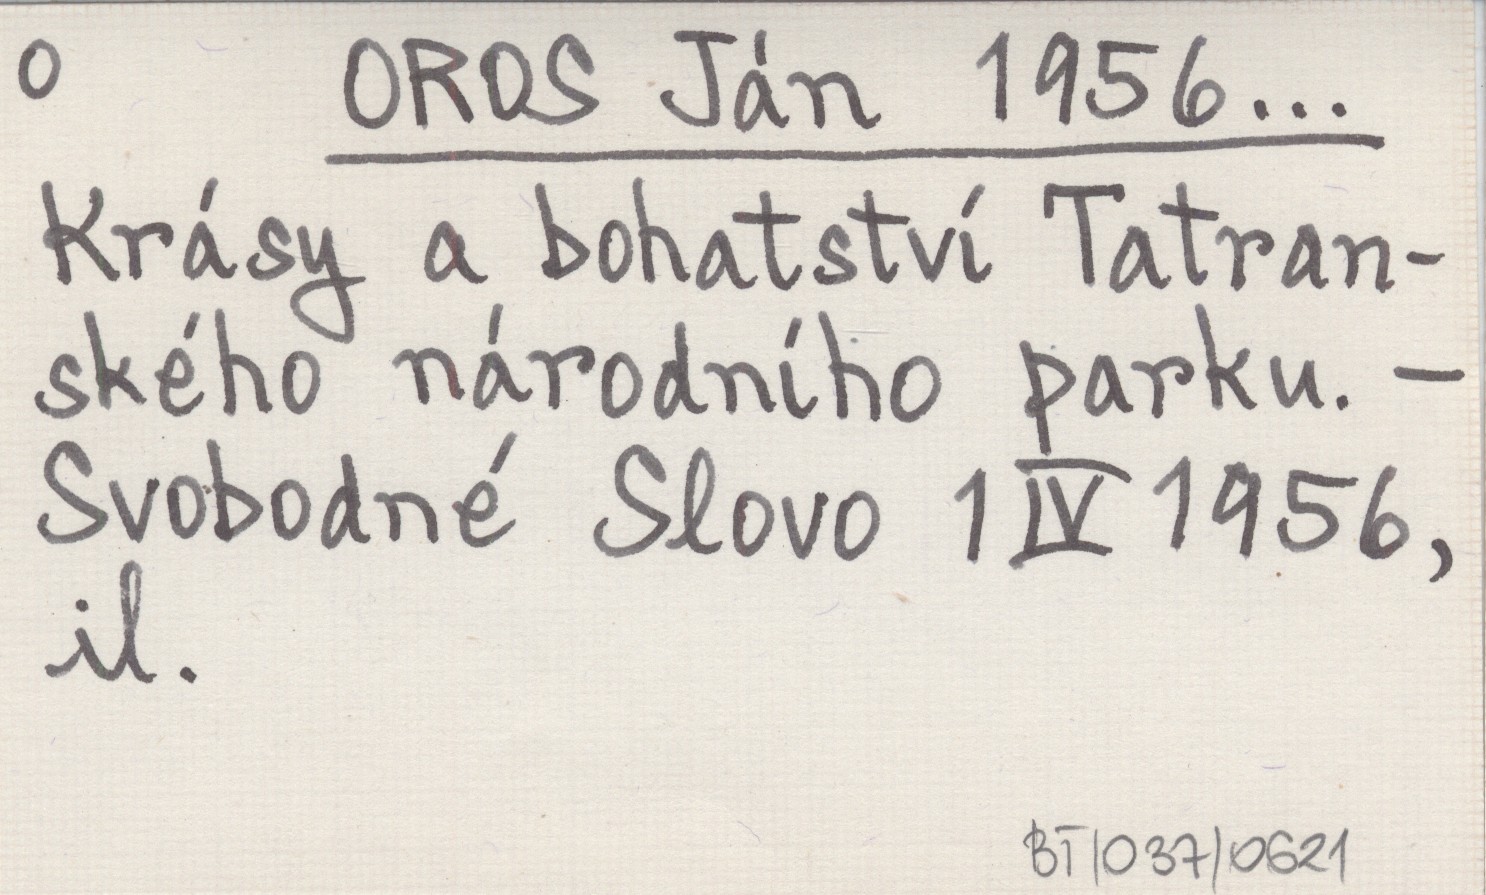 O OROS Ján 1956...
Krásy a bohatství Tatran-
ského národního parku. -
Svobodné Slovo 1 IV 1956,
il.
BT/037/0621